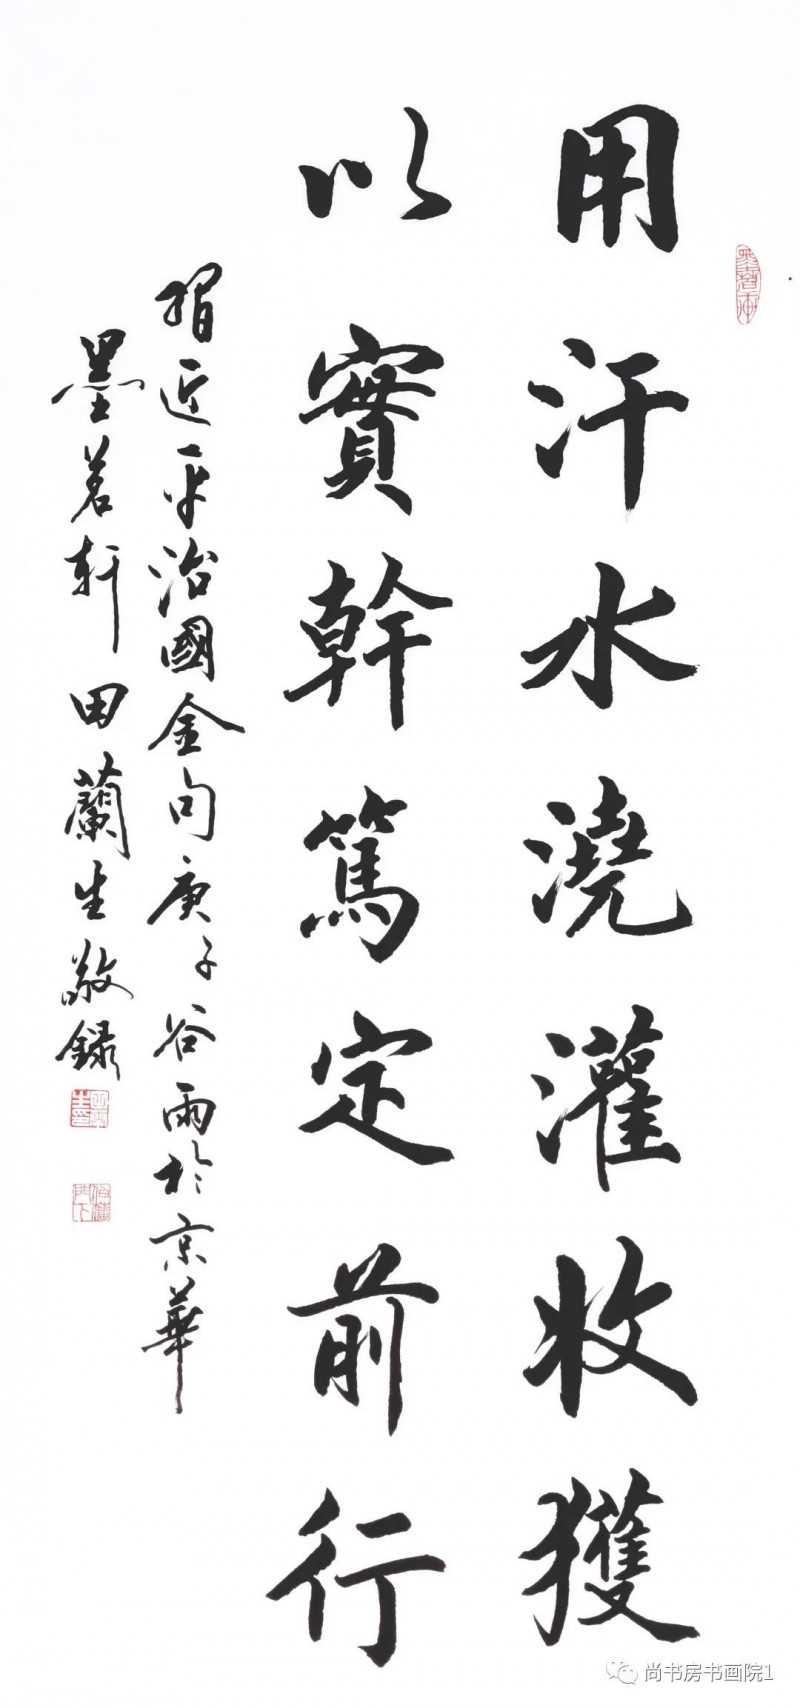 用汗水澆灌收獲
以實幹篤定前行
摺近平治國金句庚子谷雨於京華
墨茗軒田蘭生敬録
墨茗軒
尚书房书画院1